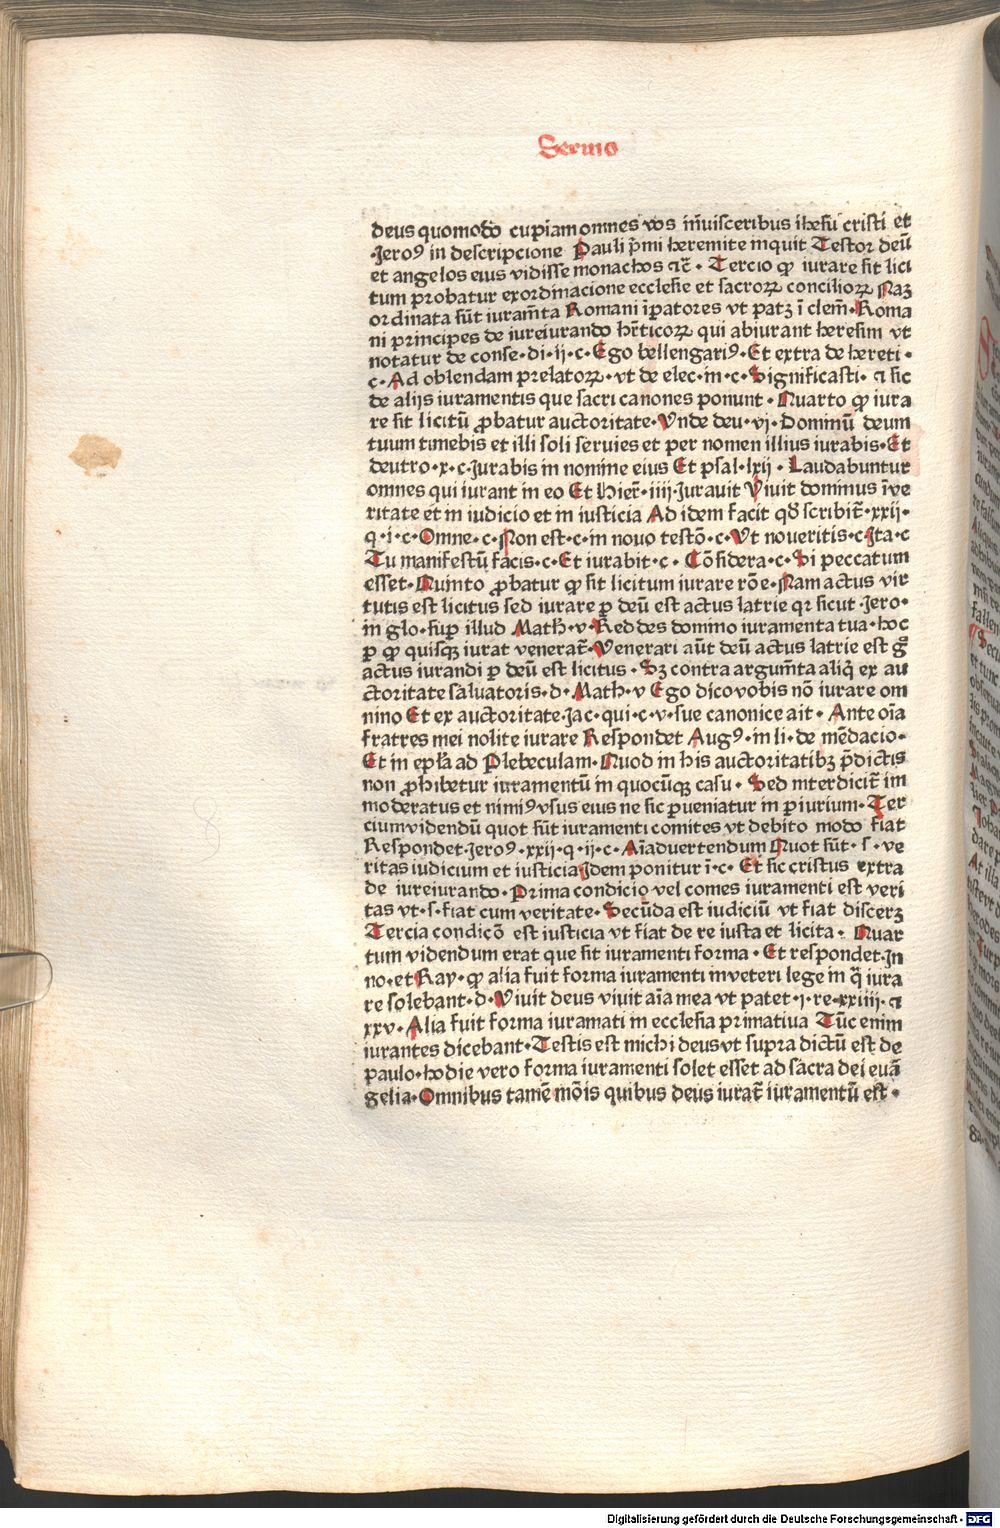 Sermo
deus quomodo cupiam omnes vos in visceribus ihesu cristi et
·Jeroꝰ in descripcione Pauli p̄mi heremite inquit Testor deū
et angelos eius vidisse monachos ⁊c̄ · Tercio ꝙ iurare sit lici
tum probatur ex ordinacione ecclesie et sacroꝝ concilioꝝ Naꝫ
ordinata sūt iuram̄ta Romani īpatores vt patꝫ ī clem̄·Roma
ni principes de iureiurando h̄eticoꝝ qui abiurant heresim vt
notatur de conse·di·ii·c·Ego bellengariꝰ·Et extra de hereti·
c·Ad oblendam prelatoꝝ·vt de elec·in·c·Significasti·⁊ sic
de alijs iuramentis que sacri canones ponunt·Quarto ꝙ iura
re sit licitū ꝓbatur auctoritate·Vnde deu·vi·Dominū deum
tuum timebis et illi soli seruies et per nomen illius iurabis·Et
deutro·x·c·Jurabis in nomine eius Et psal·lxii·Laudabuntur
omnes qui iurant in eo Et Hier̄·iiii·Jurauit Viuit dominus ī ve
ritate et in iudicio et in iusticia Ad idem facit qd̄ scribit̄·xxii·
q·i·c·Omne·c·Non est·c·in nouo testō·c·Vt noueritis·c·Ita·c
Tu manifestū facis·c·Et iurabit·c·Cōsidera·c·Si peccatum
esset·Quinto ꝓbatur ꝙ sit licitum iurare rōe·Nam actus vir
tutis est licitus sed iurare ꝑ deū est actus latrie qꝛ sicut·Jero·
in glo·suꝑ illud Math·v·Reddes domino iuramenta tua·hoc
ꝑ ꝙ quisqꝫ iurat venerat̄·Venerari aūt deū actus latrie est g̊
actus iurandi ꝑ deū est licitus·Sꝫ contra argum̄ta aliq̄ ex au
ctoritate saluatoris·d·Math·v Ego dico vobis nō iurare om
nino Et ex auctoritate·Jac·qui·c·v·sue canonice ait·Ante oīa
fratres mei nolite iurare Respondet Augꝰ·in li·de mēdacio·
Et in ep̄la ad Plebeculam·Quod in his auctoritatibꝫ p̄dictis
non ꝓhibetur iuramentū in quocūqꝫ casu·Sed interdicit̄ im
moderatus et nimiꝰ vsus eius ne sic ꝑueniatur in ꝑiurium·Ter
cium videndū quot sūt iuramenti comites vt debito modo fiat
Respondet·Jeroꝰ·xxii·q·ii·c·Aīaduertendum Quot sūt·s·ve
ritas iudicium et iusticia Idem ponitur ī·c·Et sic cristus extra
de iureiurando·Prima condicio vel comes iuramenti est veri
tas vt·s·fiat cum veritate·Secūda est iudiciū vt fiat discerꝫ
Tercia condicō est iusticia vt fiat de re iusta et licita·Quar
tum videndum erat que sit iuramenti forma·Et respondet·In
no·et Ray·ꝙ alia fuit forma iuramenti in veteri lege in q̄ iura
re solebant·d·Viuit deus viuit aīa mea vt patet·i·re·xxiiii·⁊
xxv·Alia fuit forma iuramati in ecclesia primatiua Tūc enim
iurantes dicebant·Testis est michi deus vt supra dictū est de
paulo·hodie vero forma iuramenti solet esset ad sacra dei euā
gelia·Omnibus tamē mōis quibus deus iurat̄ iuramentū est·
Digitalisierung gefördert durch die Deutsche Forschungsgemeinschaft - DFG